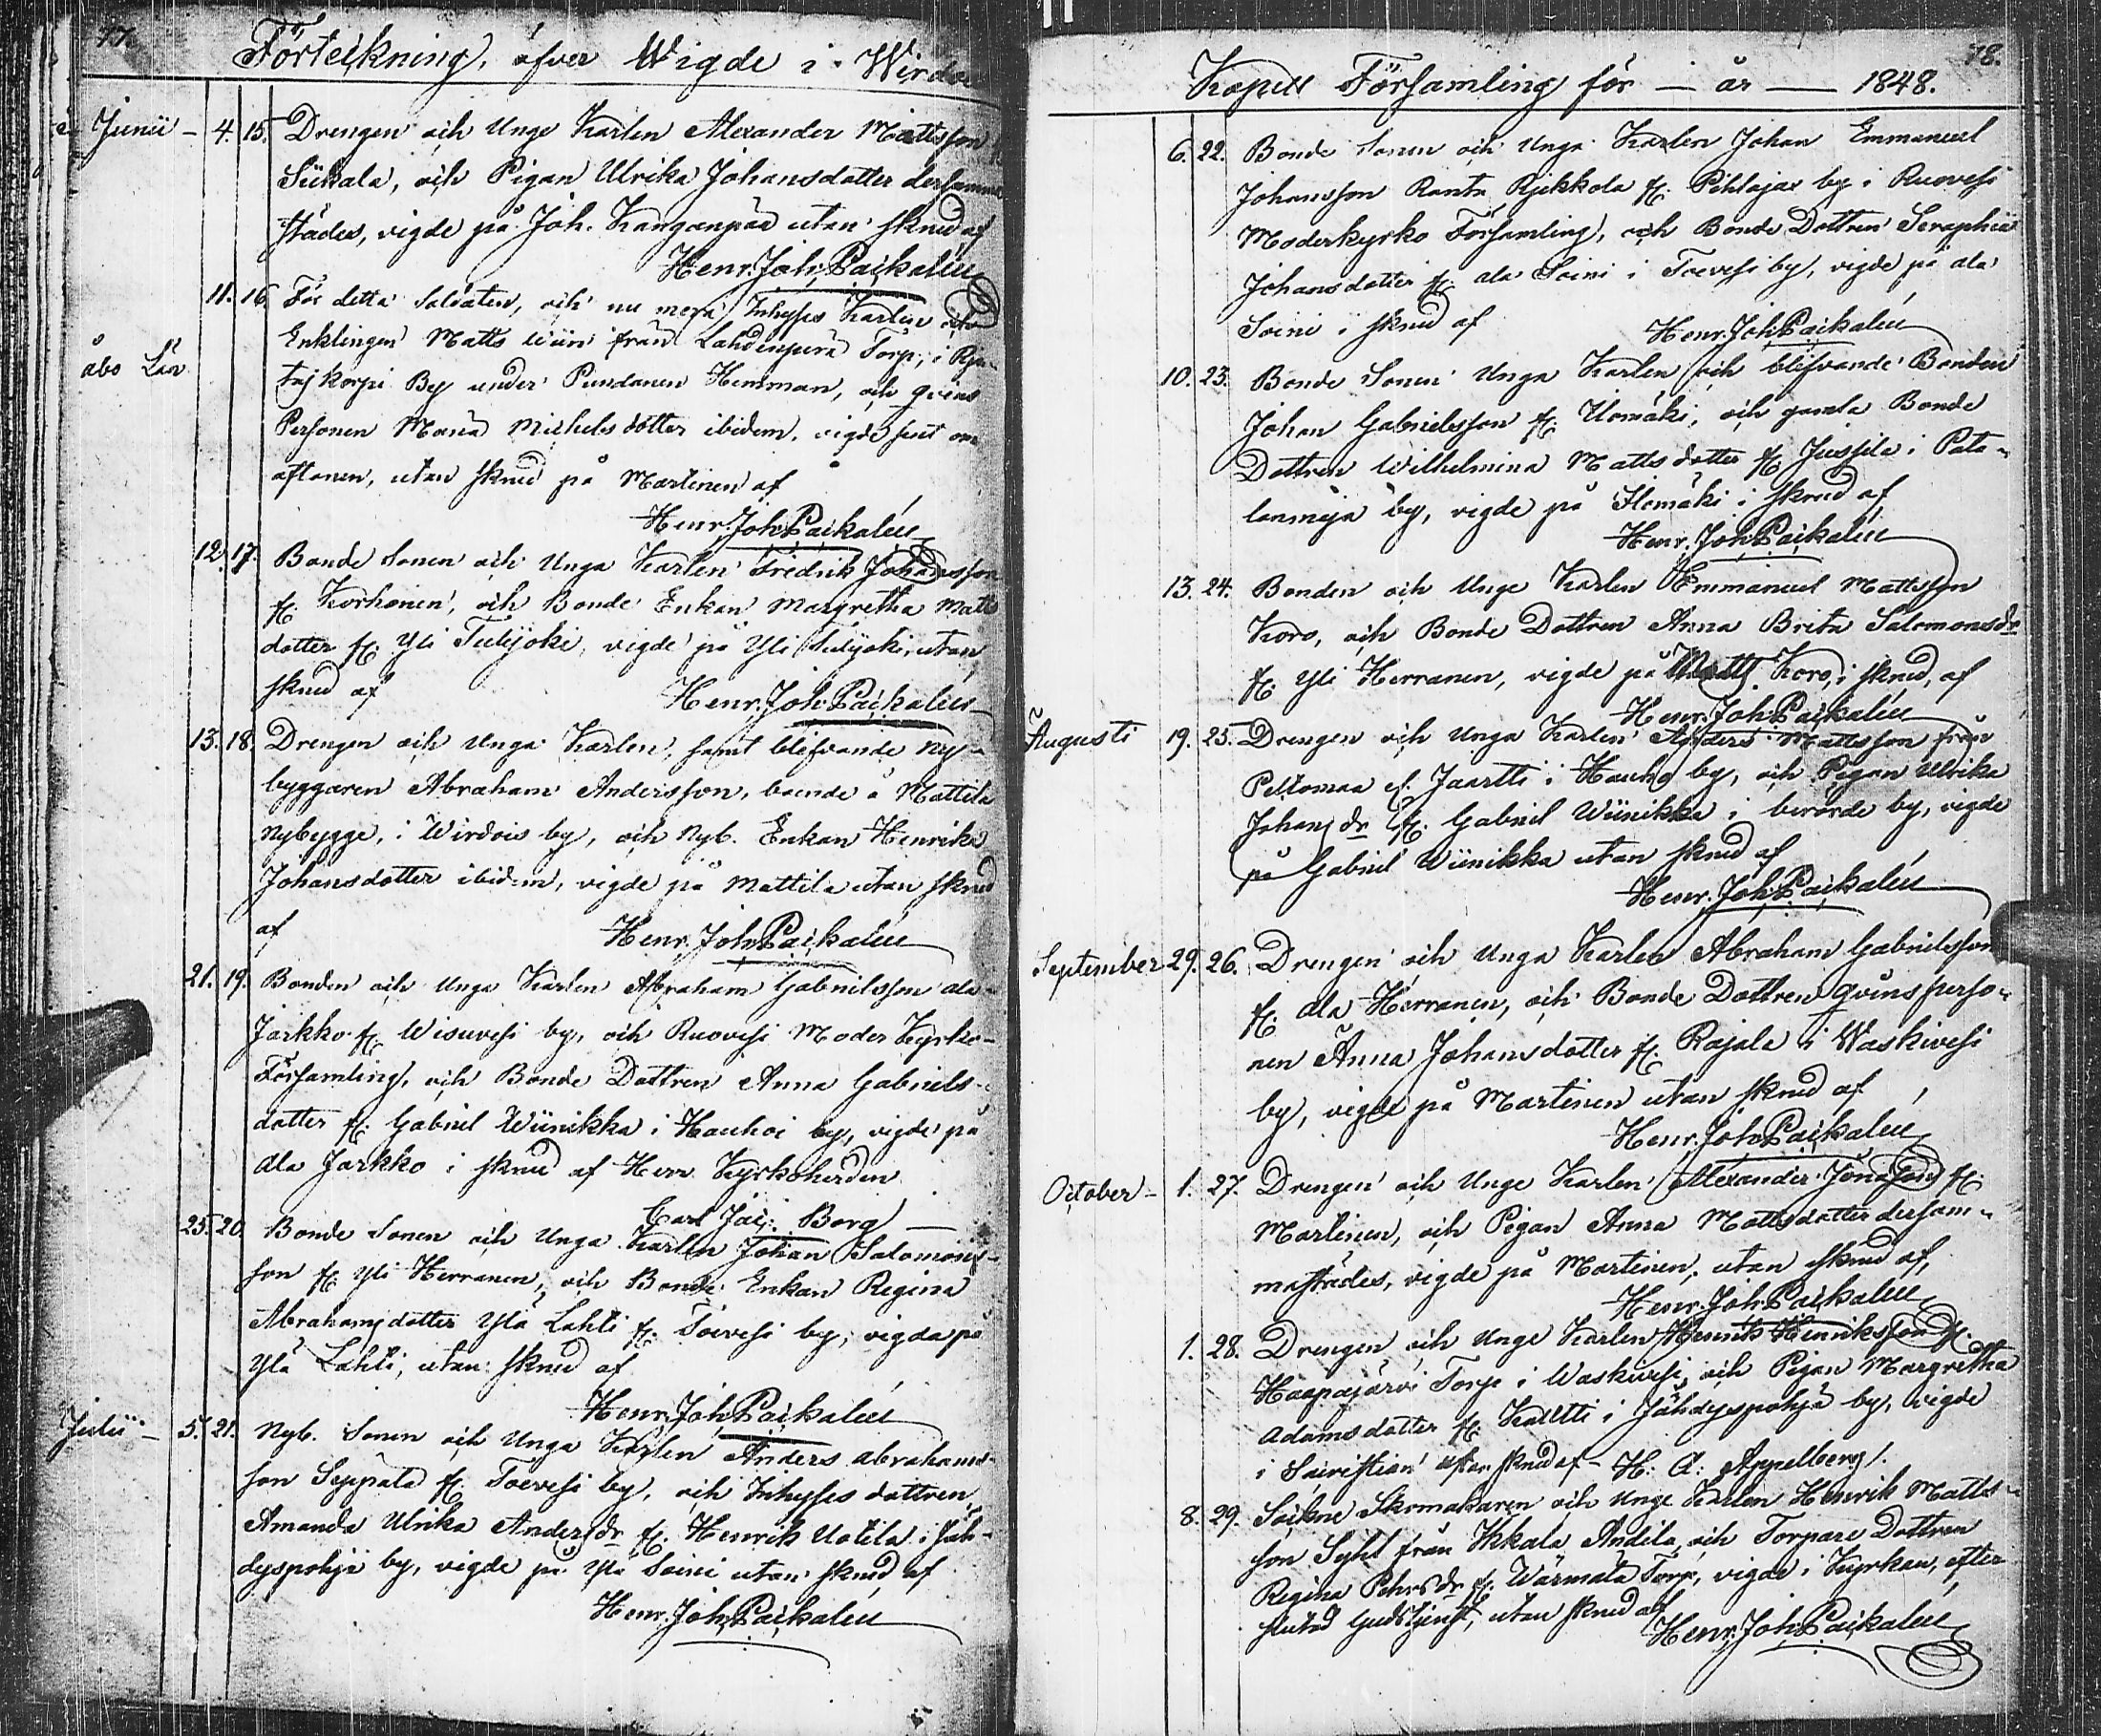 77.
Förteckning, öfver Wigde i Wirdois
Junii – 4. 15. Drengen och Unge Karlen Alexander Mattsson
Siikala, och Pigan Ulrika Johansdotter dersamma
städes, vigde på Joh. Kanganpää utan skrud af
Henr. Joh. Paickalén
11. 16. För detta Soldaten, och nu mera Inhyses Karlen och
Enklingen Matts från Torp, i
åbo Län
By under Hemman, och qvins
Personen Maria Michelsdotter ibidem, vigde sent om
aftonen, utan skrud på Martinen af
Henr. Joh. Paickalén
12. 17. Bonde Sonen och Unga Karlen Fredrik Johansson
fr. Korhonen, och Bonde Enkan Margretha Matts
dotter fr. Yli Tulijoki, vigde på Yli Tulijoki, utan
skrud af
Henr. Joh. Paickalén
13. 18. Drengen och Unga Karlen, samt blifvande Ny-
byggaren Abraham Andersson, boende å Mattila
Nybygge, i Wirdois by, och Nyb. Enkan Henrika
Johansdotter ibidem, vigde på Mattila utan skrud
af
Henr. Joh. Paickalén
21. 19. Bonden och Unga Karlen Abraham Gabrielsson ala-
Jarkko fr. Wisuvesi by, och Ruovesi Moder Kyrko-
Församling, och Bonde Dottren Anna Gabriels-
dotter fr. Gabriel Wiinikka i Hauhoi by, vigde på
Ala Jarkko i skrud af Herr Kyrkoherden
Carl Jac: Borg –
25. 20. Bonde Sonen och Unga Karlen Johan Salomons-
son fr. Yli Herranen, och Bonde Enkan Regina
Abrahamsdotter Ylä Lahti fr. Toevesi by, vigda på
Ylä Lahti, utan skrud af
Henr. Joh. Paickalén
Julii – 5. 21. Nyb. Sonen och Unga Karlen Anders Abrahams-
son Seppälä fr. Toevesi by, och Inhyses dottren
Amanda Ulrika Andersdr fr. Henrik Uotila i Jäh-
dyspohja by, vigde på Ylä Soini utan skrud af
Henr. Joh. Paickalén
78.
Kapell Församling för – år – 1848.
6. 22. Bonde Sonen och Unga Karlen Johan Emmanuel
Johansson Ranta fr. Pihlajax by i Ruovesi
Moderkyrko Församling, och Bonde Dottren Seraphia
Johansdotter fr. ala Soini i Toevesi by, vigde på ala
Soini i skrud af
Henr. Joh. Paickalén
10. 23. Bonde Sonen Unga Karlen och blifvande Bonden
Johan Gabrielsson fr. Ilomäki, och gamla Bonde
Dottren Wilhelmina Mattsdotter fr. Jussila i Pata-
lanmeja by, vigde på Ilomäki i skrud af
Henr. Joh. Paickalén
13. 24. Bonden och Unge Karlen Emmanuel Mattsson
Koro, och Bonde Dottren Anna Brita Salomonsdr
fr. Yli Herranen, vigde på Matts Koro, i skrud, af
Henr. Joh. Paickalén
Augusti 19. 25. Drengen och Unga Karlen Anders Mattsson från
Peltomaa el. Jaartti i Hauho by, och Pigan Ulrika
Johansdr fr. Gabriel Wiinikka i berörde by, vigde
på Gabriel Wiinikka utan skrud af
Henr. Joh. Paickalén
September 29. 26. Drengen och Unga Karlen Abraham Gabrielsson
fr. Ala Herranen, och Bonde Dottren qvinsperso-
nen Anna Johansdotter fr. Rajala i Waskivesi
by, vigde på Martinen utan skrud af
Henr. Joh. Paickalén
October – 1. 27. Drengen och Unge Karlen Alexander Jonasson fr.
Martinen, och Pigan Anna Mattsdotter dersam-
mastädes, vigde på Martinen, utan skrud af,
Henr. Joh. Paickalén
1. 28. Drengen och Unge Karlen Henrik Henriksson fr.
Haapajärvi Torp i Waskivesi, och Pigan Margretha
Adamsdotter fr. Kaltti i Jähdyspohja by, vigde
i Sacristian utan skrud af – H: A: Appelberg /.
8. 29. Sockne Skomakaren och Unge Karlen Henrik Matts-
son från Ikkala Andila, och Torpare Dottren
Regina Pehrsdr fr. Wärmälä Torp, vigde i Kyrkan, efter
slutad Gudstjenst, utan skrud af
Henr. Joh. Paickalén